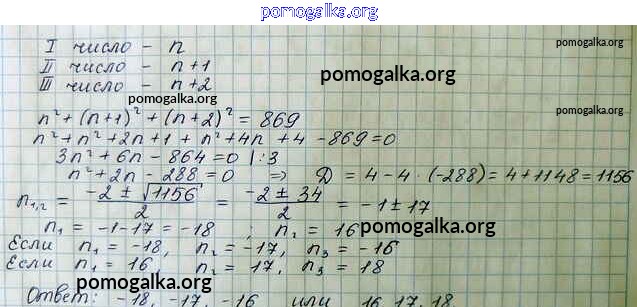 pomogalka.org
I число - n
II число - n+1
III число - n+2
pomogalka.org
pomogalka.org
pomogalka.org
pomogalka.org
n² + (n+1)² + (n+2)² = 869
n² + n² + 2n + 1 + n² + 4n + 4 - 869 = 0
3n² + 6n - 864 = 0 | :3
n² + 2n - 288 = 0 ⇒ D = 4 - 4 · (-288) = 4 + 1148 = 1156
n₁,₂ = (-2 ± √1156)/2 = (-2 ± 34)/2 = -1 ± 17
n₁ = -1 - 17 = -18 ; n₂ = 16
pomogalka.org
Если n₁ = -18, n₂ = -17, n₃ = -16
Если n₁ = 16, n₂ = 17, n₃ = 18
pomogalka.org
Ответ: -18, -17, -16 или 16, 17, 18